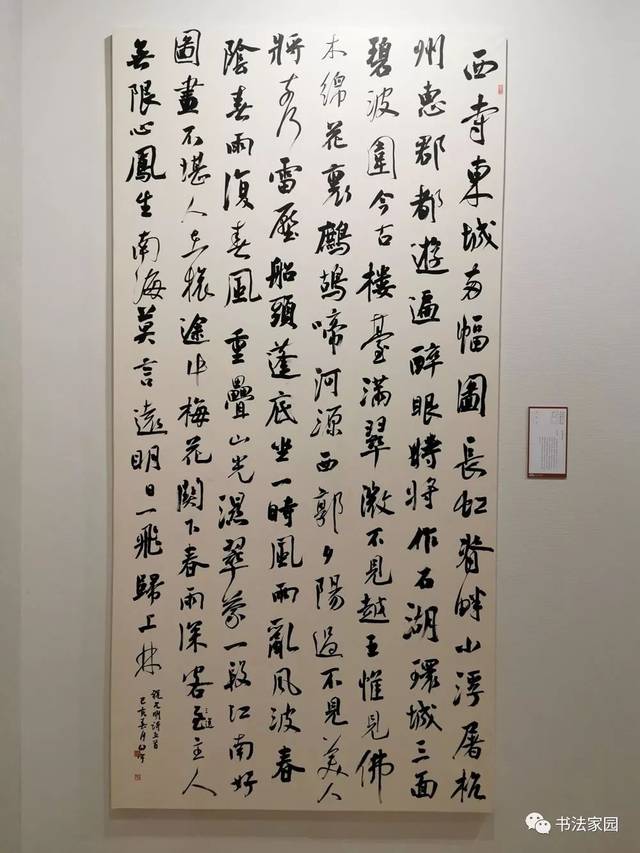 西寺東城两幅圖長虹脊畔小浮屠杭
州惠郡都遊遍醉眼時將作石湖環城三面
碧波圍今古樓臺滿翠微不見越王惟見佛
木綿花裏鷓鴣啼河源西郭夕陽過不見美人
將奈何雷壓船頭蓬底坐一時風雨亂風波春
陰春雨復春風重疊山光濕翠蒙一段江南好
圖畫不堪人在旅途中梅花關下春雨深客至主人
無限心鳳生南海莫言遠明日一飛歸上林
祝允明詩五首
己亥
书法家园